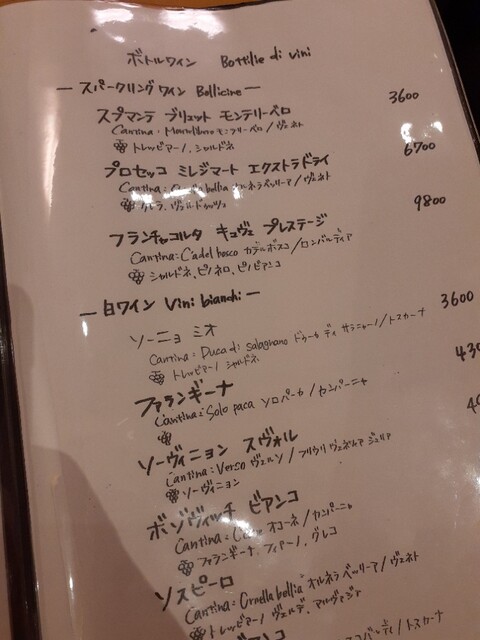 ボトルワイン Bottilie di vini
— スパークリング ワイン Bollicine —
スプマンテ ブリュット モンテリーベロ 3600
Cantina: Montelibero モンテリーベロ / ヴェネト
トレッビアーノ, シャルドネ
プロセッコ ミレジマート エクストラドライ 6700
Cantina: bellia オルネラベッリーア / ヴェネト
グレラ, ヴェルドゥッツォ
フランチャコルタ キュヴェ プレステージ 9800
Cantina: Ca'del bosco カデルボスコ / ロンバルディア
シャルドネ, ピノネロ, ピノビアンコ
— 白ワイン Vini bianchi —
ソーニョ ミオ 3600
Cantina: Duca di salagnano ドゥーカ ディ サラニャーノ / トスカーナ
トレッビアーノ シャルドネ
ファランギーナ
Cantina: Solo paca ソロパーカ / カンパーニャ
ソーヴィニョン スヴォル
Cantina: Verso ヴェルソ / フリウリ ヴェネツィア ジュリア
ソーヴィニヨン
ボゾヴィッチ ビアンコ
Cantina: オコーネ / カンパーニャ
ファランギーナ, フィアーノ, グレコ
ソスピーロ
Cantina: Ornella bellia オルネラ ベッリーア / ヴェネト
トレッビアーノ ヴェルデ,
/ トスカーナ